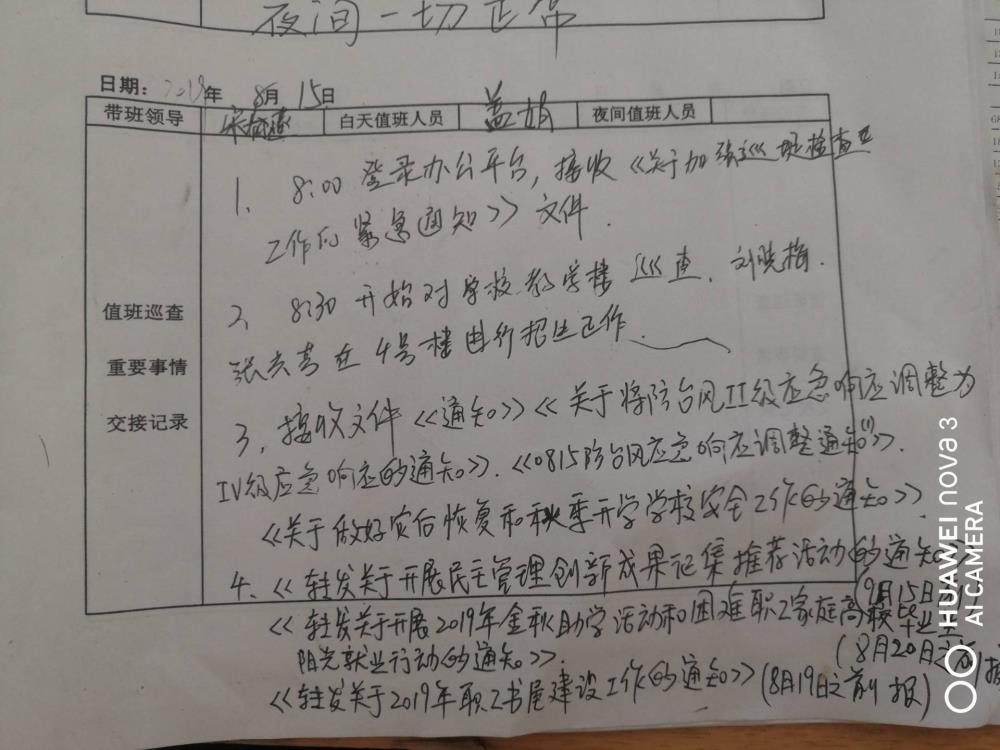 夜间一切正常
日期: 2019年 8月 15日
带班领导 白天值班人员 盖娟 夜间值班人员
1、 8:00 登录办公平台, 接收《关于加强巡班检查
工作的紧急通知》文件.
值班巡查
重要事情
交接记录
2、 8:30 开始对学校教学楼巡查. 刘晓梅.
张云青在4号楼进行招生工作.
3, 接收文件《通知》《关于将防台风II级应急响应调整为
IV级应急响应的通知》.《0815防台风应急响应调整通知(1)》.
《关于做好灾后恢复和秋季开学学校安全工作的通知》.
4、《转发关于开展民主管理创新成果记集推荐活动的通知》
(9月15日前)
《转发关于开展2019年金秋助学活动和困难职工家庭高校毕业生
阳光就业行动的通知》.
(8月20日之前报
《转发关于2019年职工书屋建设工作的通知》(8月19日之前报)
HUAWEI nova 3
AI CAMERA